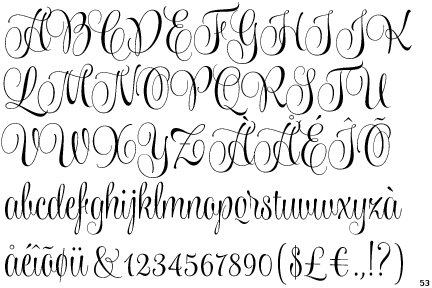 ABCDEFGHIJK
LMNOPQRSTU
VWXYZÀÅÉÎÕ
abcdefghijklmnopqrstuvwxyzà
åéîõøü&1234567890($£€.,!?)
53